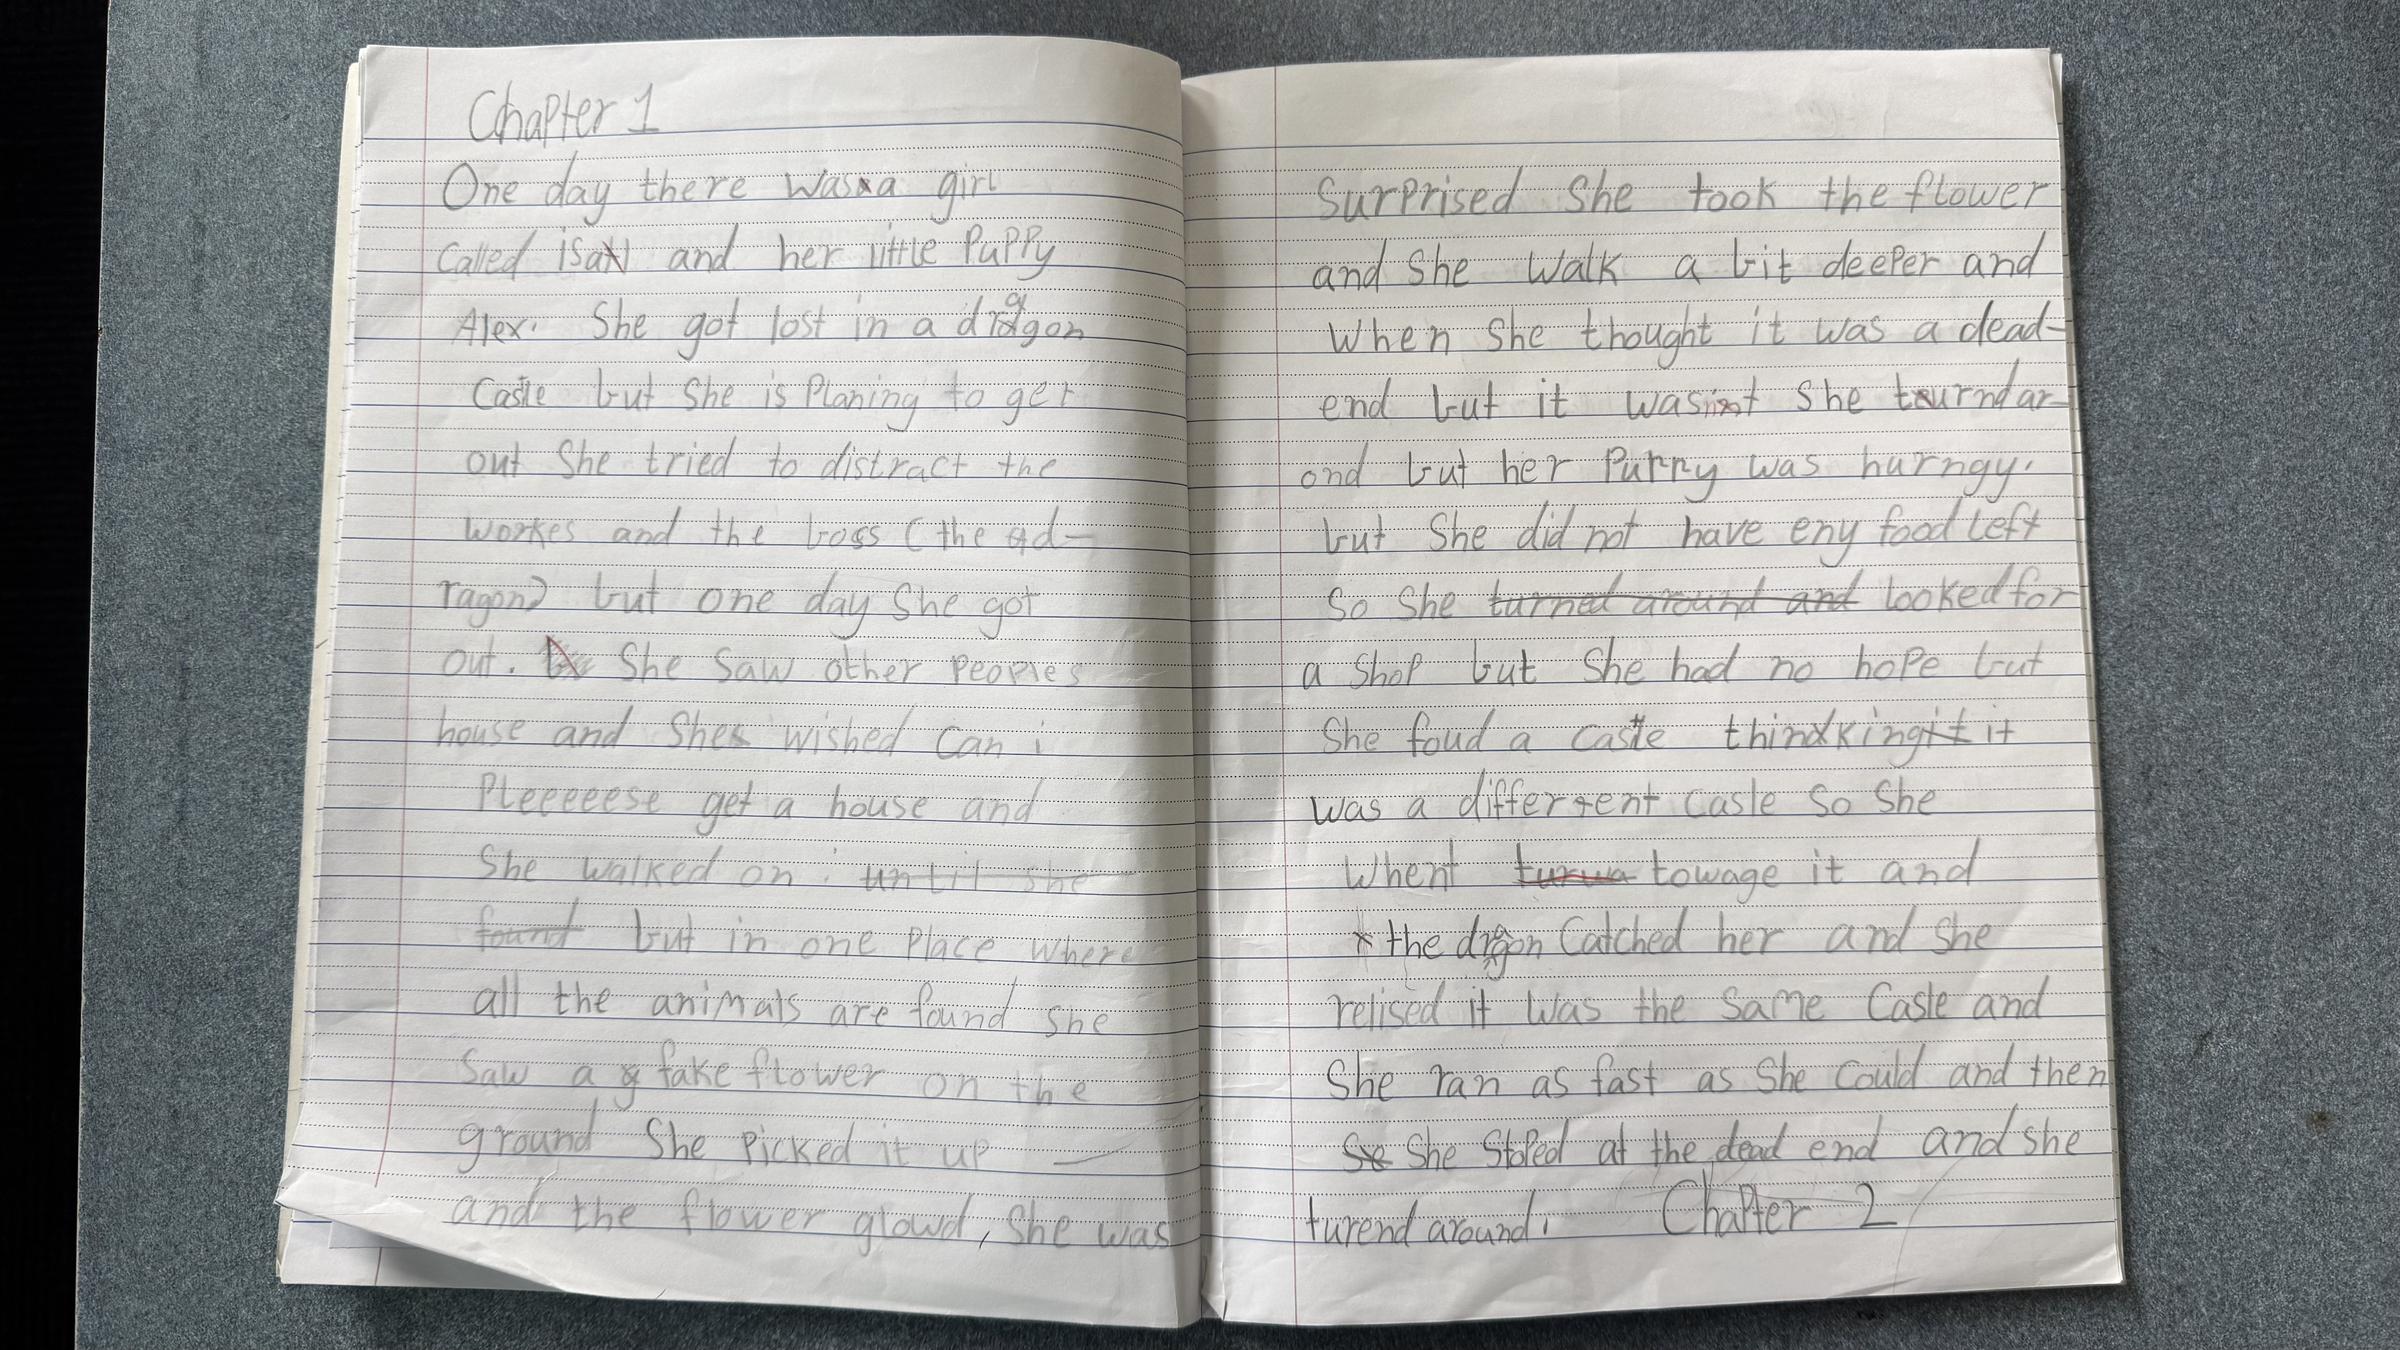 Chapter 1
One day there was a girl
Called isal and her little Puppy
Alex. She got lost in a dragon
Castle but She is Planing to get
out She tried to distract the
workes and the boss (the d-
ragon) but one day She got
out. She Saw other Peoples
house and She wished Can i
Pleeeeese get a house and
She walked on. until she
found but in one Place where
all the animals are found she
Saw a fake flower on the
ground She Picked it up
and the flower glowd, She was
Surprised She took the flower
and She walk a bit deeper and
When She thought it was a dead-
end but it wasint She turnd ar-
ond but her Puppy was hurngy.
but She did not have eny food left
So She turned around and looked for
a Shop but She had no hope but
She foud a castle thinking it it
was a differrent casle So She
Whent towage it and
the dragon Catched her and She
relised it Was the Same Casle and
She ran as fast as She Could and then
She Stoped at the dead end and she
turend around. Chapter 2